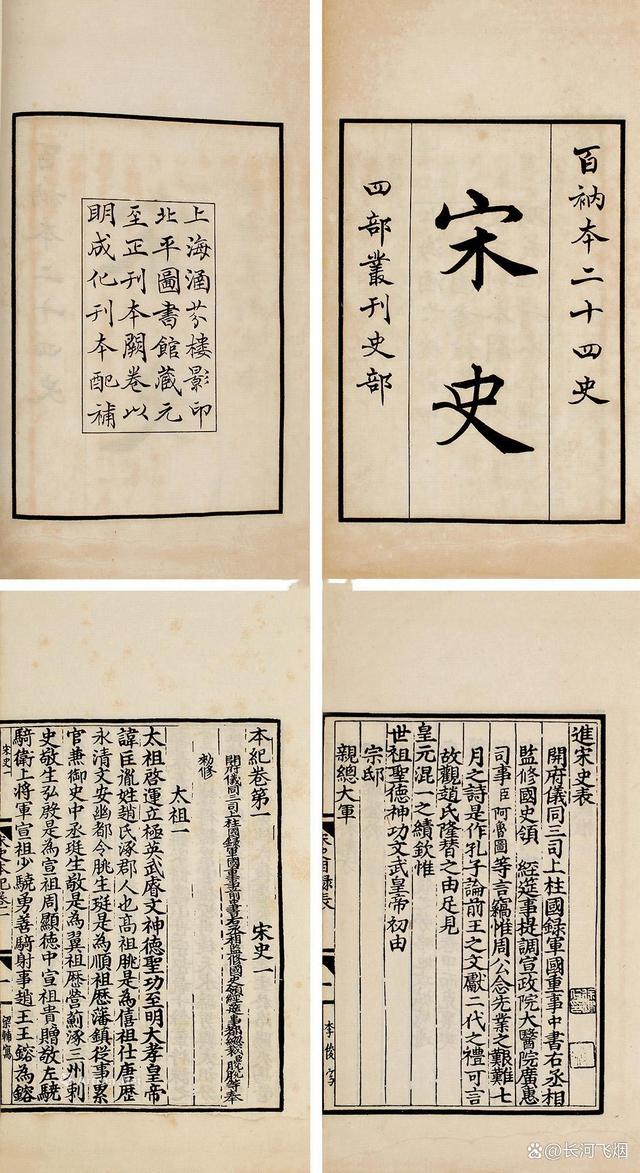 百衲本二十四史
宋史
四部叢刊史部
上海涵芬樓影印
北平圖書館藏元
至正刊本闕卷以
明成化刊本配補
進宋史表
開府儀同三司上柱國錄軍國重事中書右丞相
監修國史領 經筵事提調宣政院大醫院廣惠
司事臣阿魯圖等言竊惟周公念先業之艱難七
月之詩是作孔子論前王之文獻二代之禮可言
故觀趙氏隆替之由足見
皇元混一之績欽惟
世祖聖德神功文武皇帝初由
宗邸
親總大軍
李俊
本紀卷第一 宋史一
開府儀同三司上柱國錄軍國重事前中書右丞相監修國史領經筵事都總裁臣脫脫等奉
勅修
太祖一
太祖啓運立極英武睿文神德聖功至明大孝皇帝
諱匡胤姓趙氏涿郡人也高祖朓是為僖祖仕唐歷
永清文安幽都令朓生珽是為順祖歷藩鎮從事累
官兼御史中丞珽生敬是為翼祖歷營薊涿三州刺
史敬生弘殷是為宣祖周顯德中宣祖貴贈敬左驍
騎衛上將軍宣祖少驍勇善騎射事趙王王鎔為鎔
宋史一
梁輔寫
百家号/长河飞烟